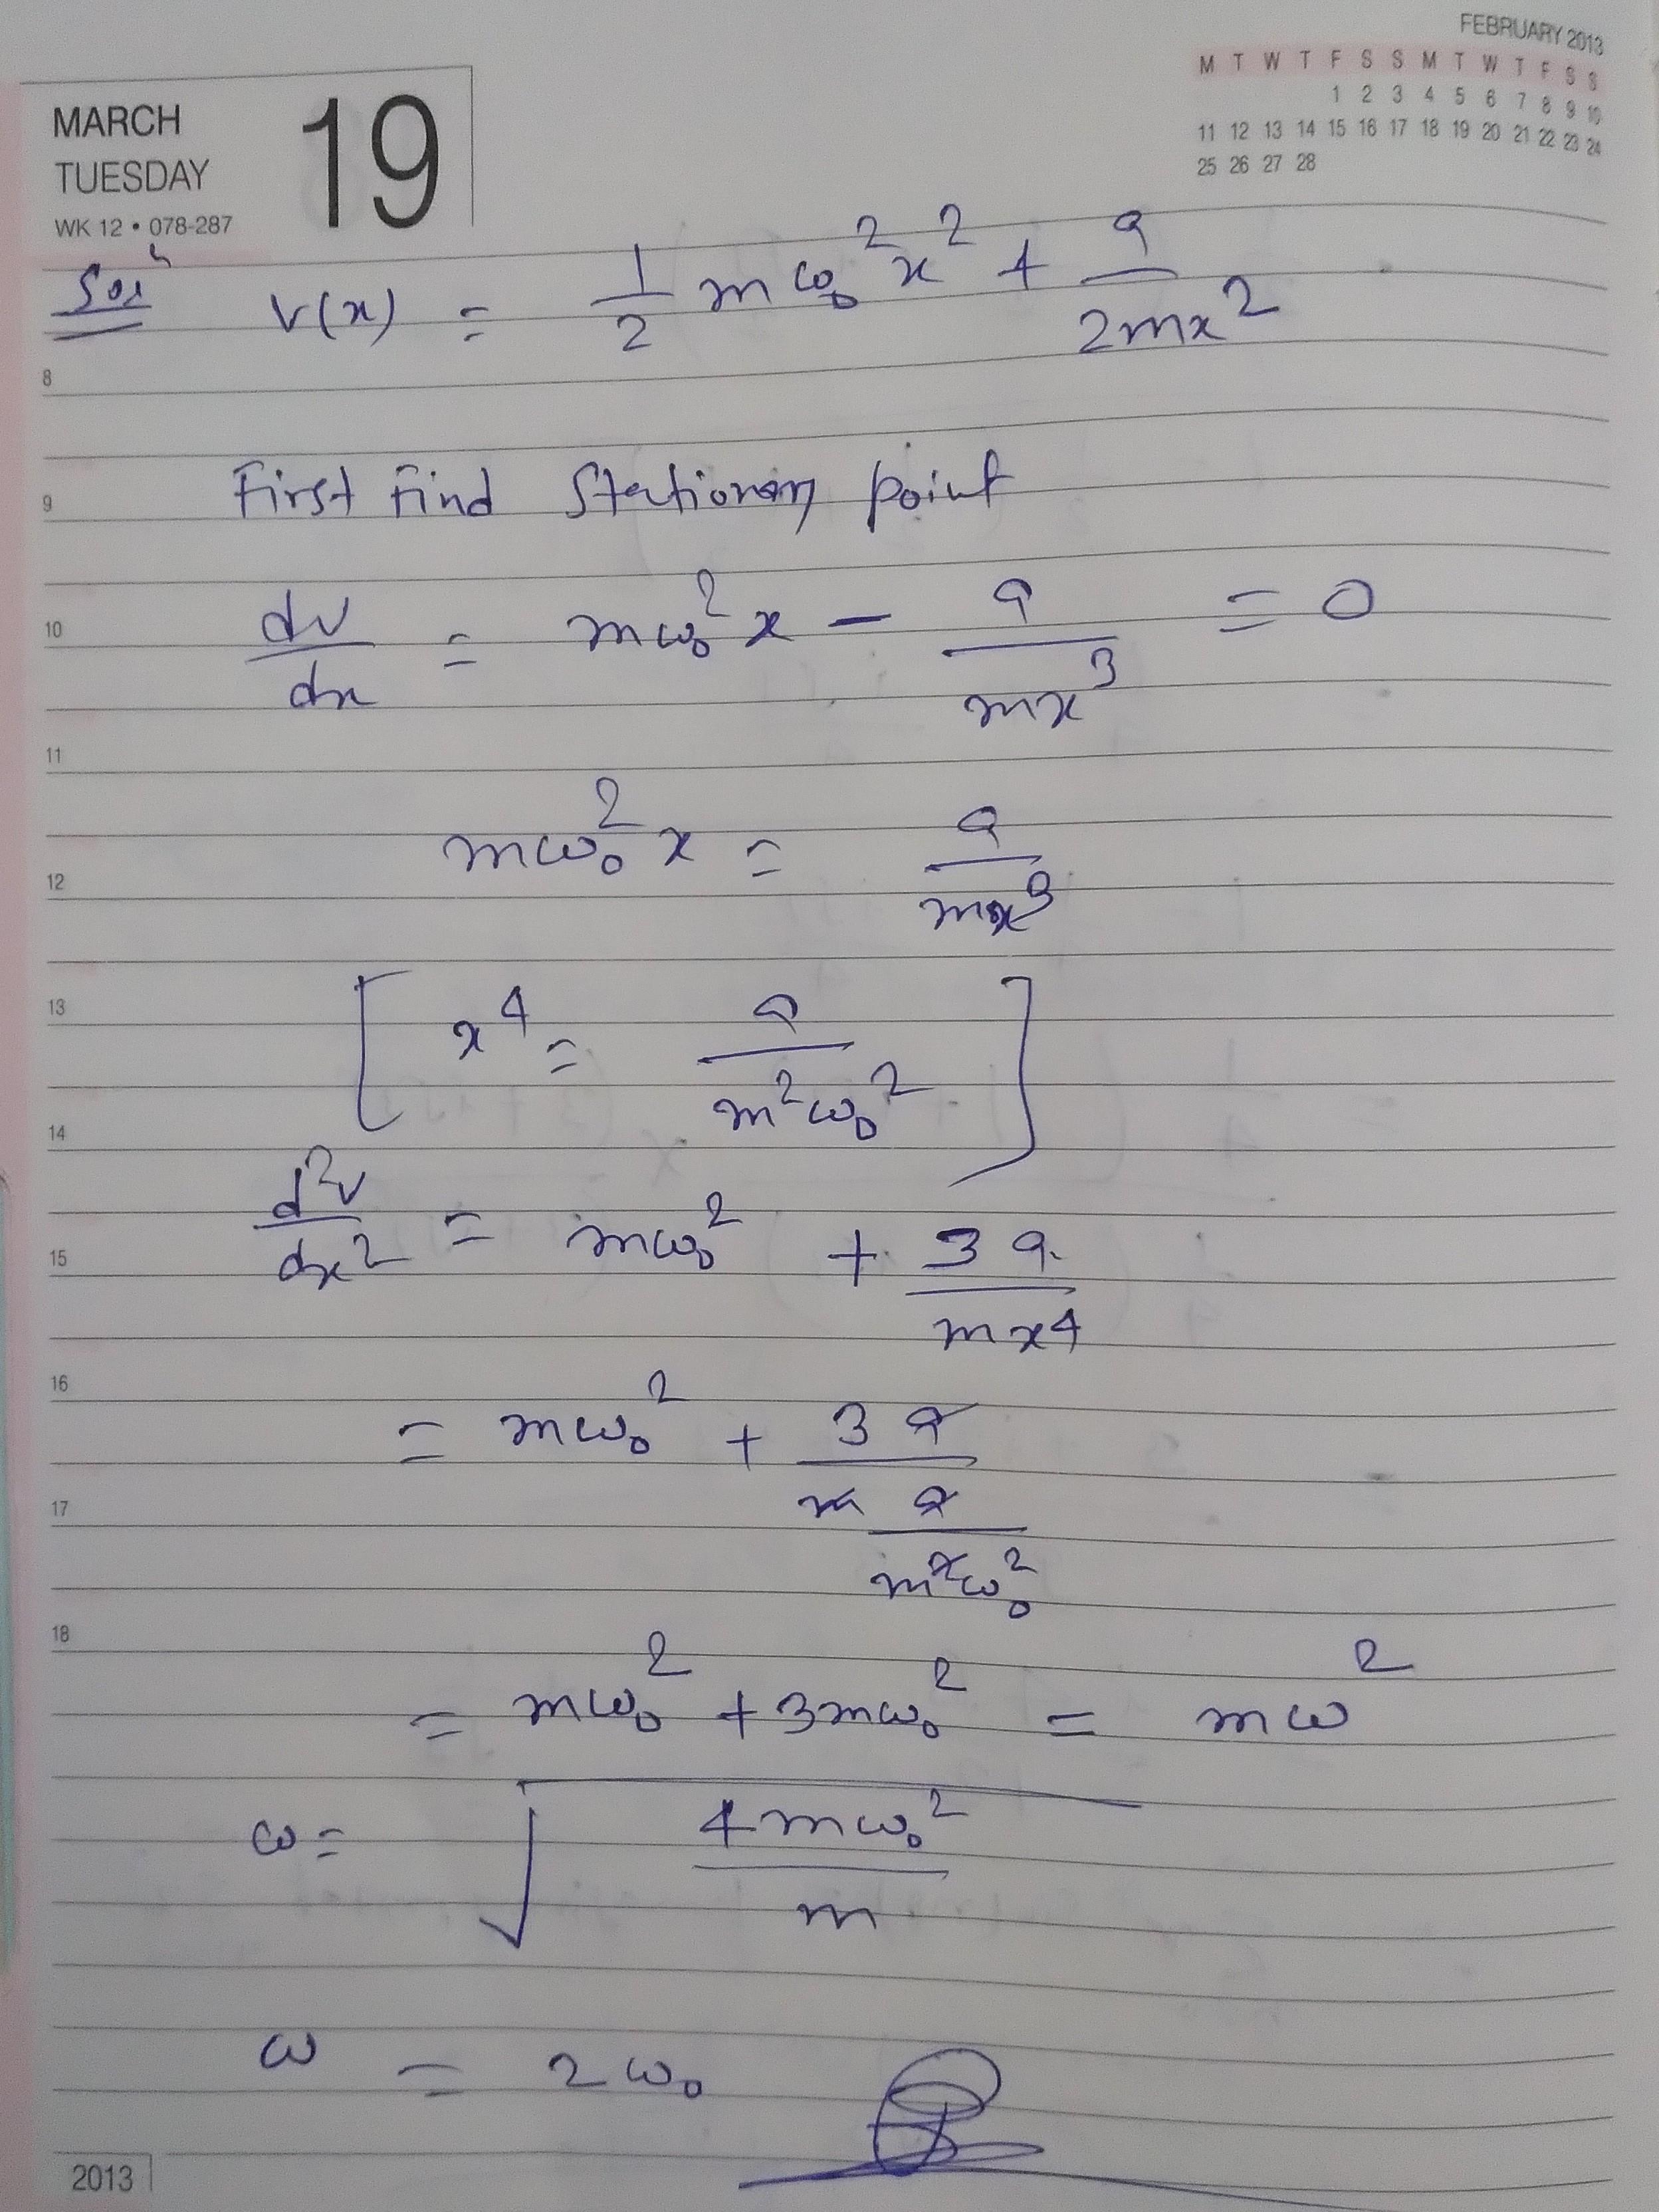 FEBRUARY 2013
M T W T F S S M T W T F S S
1 2 3 4 5 6 7 8 9 10
11 12 13 14 15 16 17 18 19 20 21 22 23 24
25 26 27 28
MARCH
TUESDAY
19
WK 12 • 078-287
Solⁿ V(x) = 1/2 mω₀²x² + a/2mx²
8
First find Stationary point
9
10 dv/dx = mω₀²x − a/mx³ = 0
11
mω₀²x = a/mx³
12
13 [x⁴ = a/m²ω₀²]
14
d²v/dx² = mω₀² + 3a/mx⁴
15
16 = mω₀² + 3a/(m a/m²ω₀²)
17
18
= mω₀² + 3mω₀² = mω²
ω = √(4mω₀²/m)
ω = 2ω₀
2013